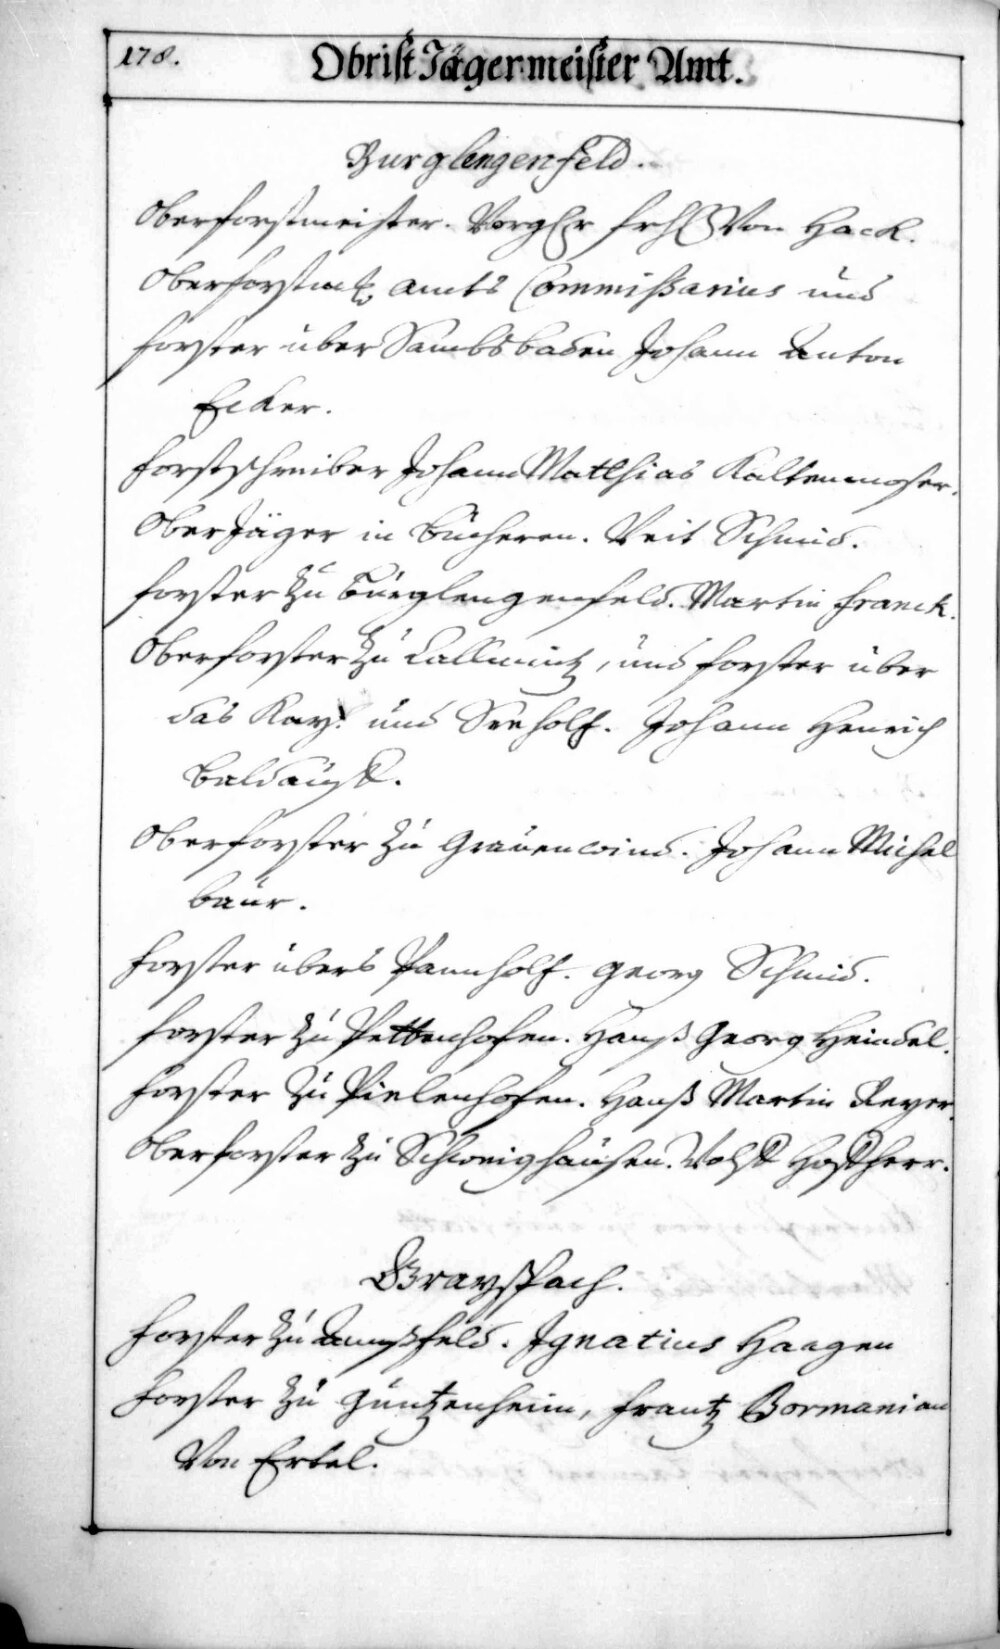 178.
Obrist Jägermeister Amt.
Burglengenfeld.
Oberforstmeister. Von Hack.
Oberforstmstr. Amts Commißarius und
Forster über Johann Anton
Ecker.
Forstschreiber Johann Matthias Kaltenmoser.
OberJäger in Bücheren. Veit Schmid.
Forster zu Burglengenfeld. Martin Franck.
Oberforster zu Callmüntz, und Forster über
das Kay. und Seeholtz. Johann Henrich
Baldauff.
Oberforster zu Grauenwind. Johann Michel
Baur.
Forster übers Pannholtz. Georg Schmid.
Forster zu Pettenhofen. Hanß Georg Heindel.
Forster zu Pielenhofen. Hanß Martin Reyer.
Oberforster zu Schweighausen. Wolff
Grayspach.
Forster zu Ignatius Haagen
Forster zu Guntzenheim, Frantz Bormanian
Von Ertel.